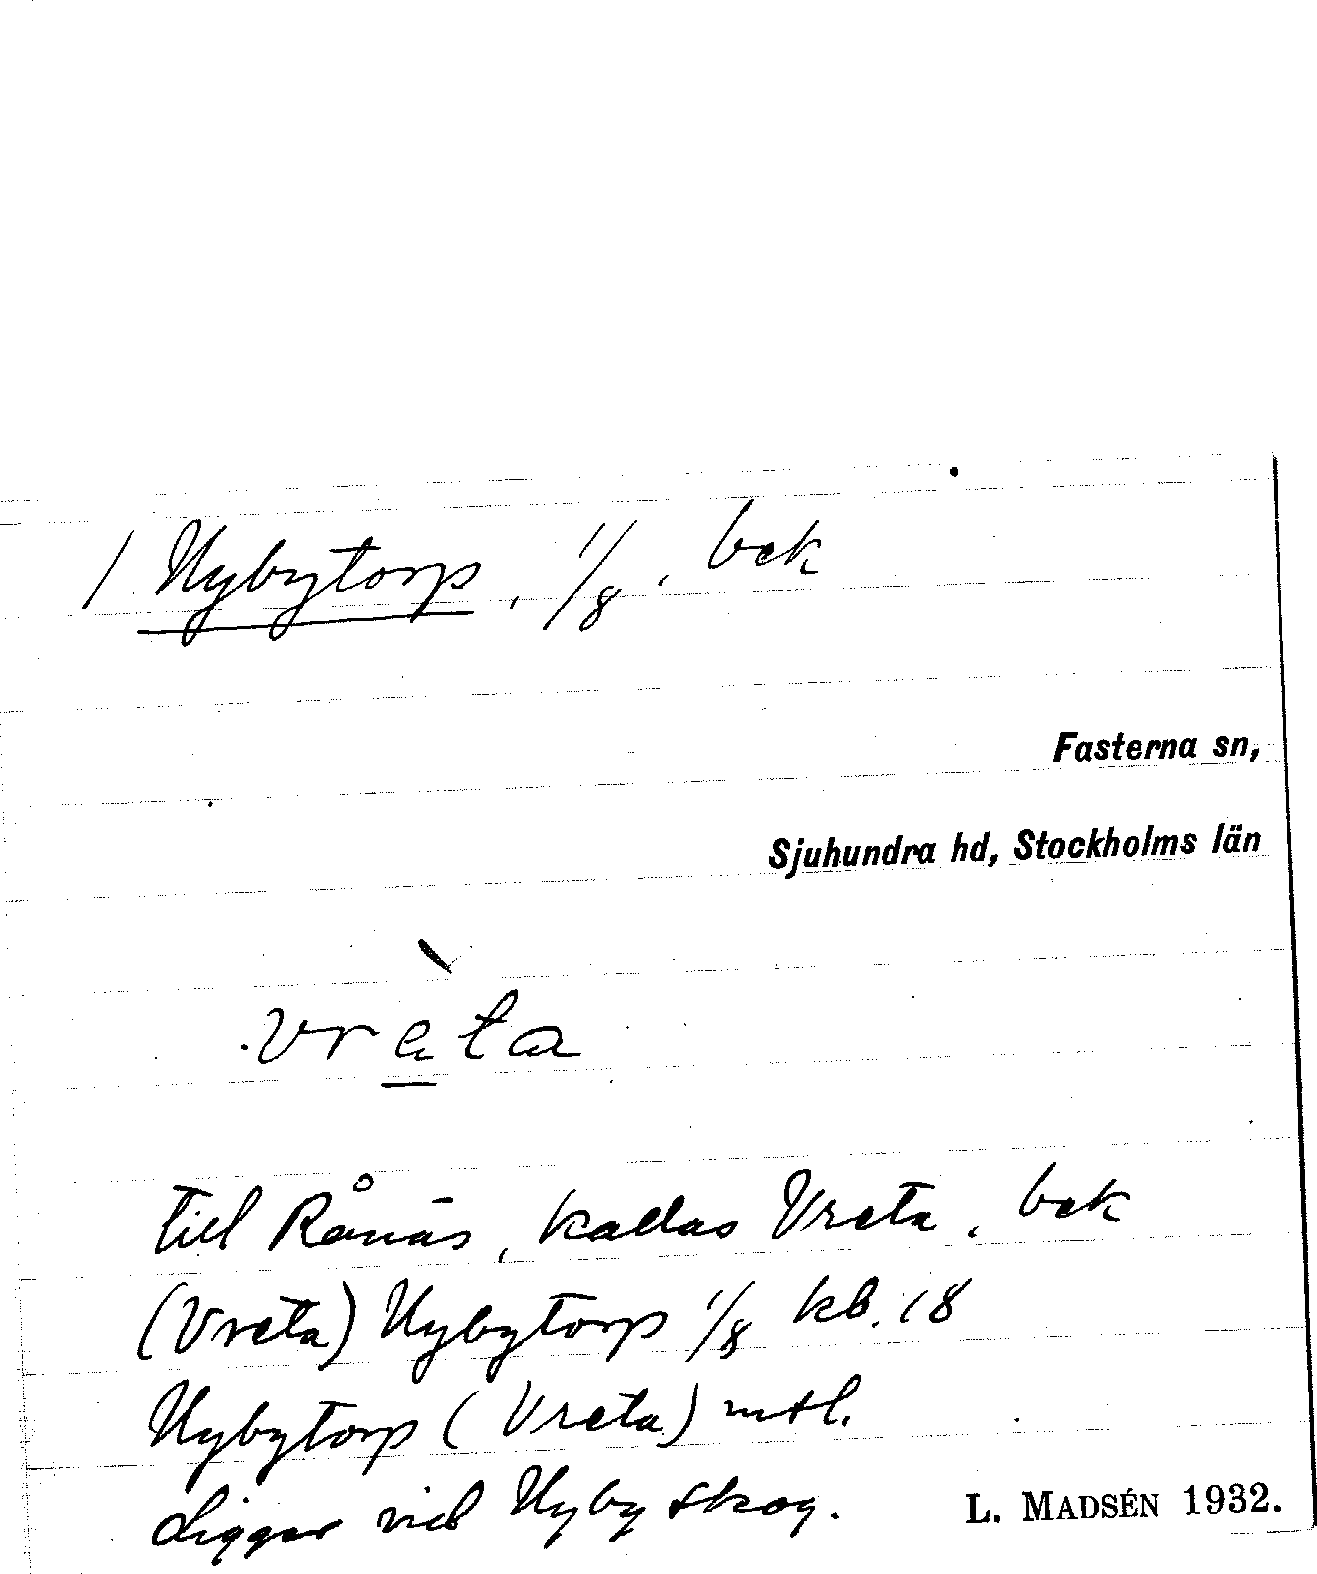 / Nybytorp, 1/8, bek
Fasterna sn,
Sjuhundra hd, Stockholms län
vrèta
till Rånäs, kallas Vreta, bek
(Vreta) Nybytorp 1/8 kb. 18
Nybytorp (Vreta) mtl.
Ligger vid Nyby skog.
L. MADSÉN 1932.